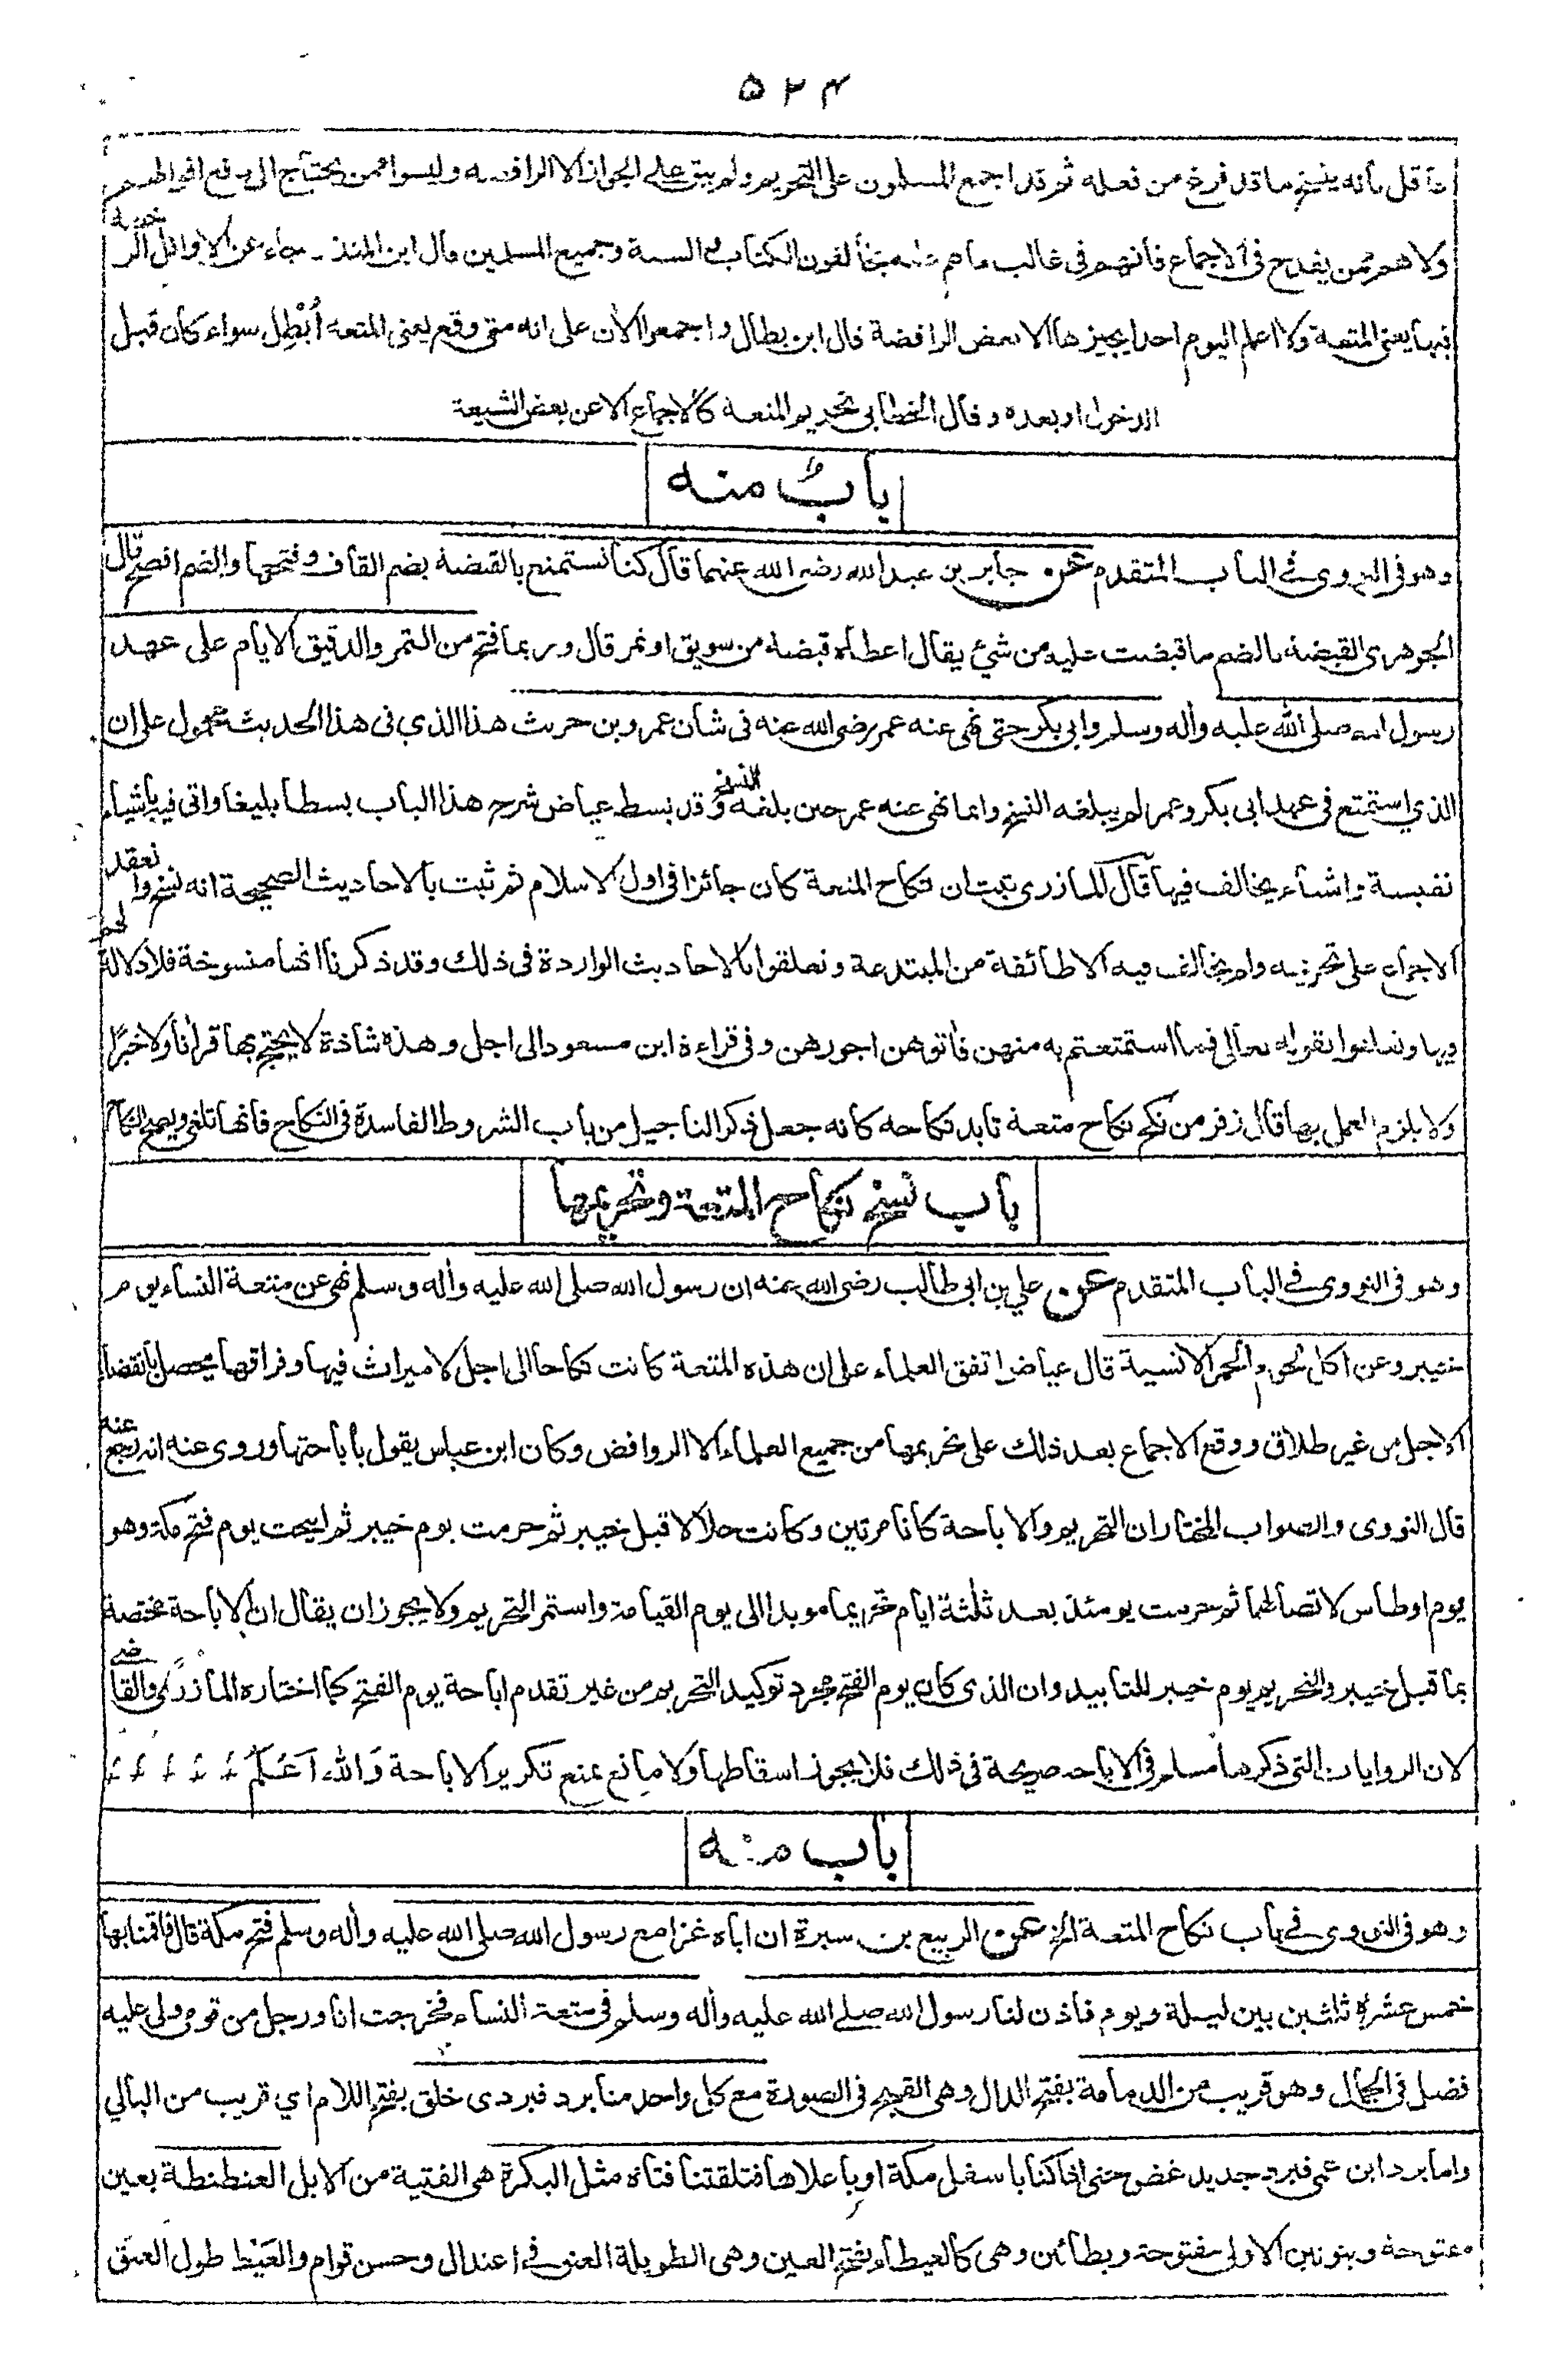 ٥٢٤
ما قل بأنه ينسخ ما قد فرغ من فعله ثم قد اجمع المسلمون على التحريم ولم يبق على الجواز الا الرافضه وليسوا ممن يحتاج الى دفع اقوالهم
ولا هم ممن يقدح فى الاجماع فانهم فى غالب ما هم عليه مخالفون الكتاب والسنة وجميع المسلمين قال ابن المنذر جاء عن الاوائل الرخصة
فيها يعنى المتعة ولا اعلم اليوم احدا يجيزها الا بعض الرافضة قال ابن بطال واجمعوا الان على انه متى وقع يعنى المتعه أُبْطِل سواء كان قبل
الدخول او بعده وقال الخطابى تحريم المتعة كالاجماع الا عن بعض الشيعة
بابٌ منه
وهو فى النووى فى الباب المتقدم عن جابر بن عبد الله رضى الله عنهما قال كنا نستمتع بالقبضة بضم القاف وفتحها والضم افصح قال
الجوهرى القبضة بالضم ما قبضت عليه من شئ يقال اعطاه قبضه من سويق او تمر قال وربما فتح من التمر والدقيق الايام على عهد
رسول الله صلى الله عليه واله وسلم وابى بكر حتى نهى عنه عمر رضى الله عنه فى شان عمرو بن حريث هذا الذي فى هذا الحديث محمول على ان
الذي استمتع فى عهد ابى بكر وعمر لم يبلغه النسخ وانما نهى عنه عمر حين بلغه النسخ وقد بسط عياض شرح هذا الباب بسطا بليغا واتى فيه باشياء
نفيسة واشياء يخالف فيها قال المازرى ثبت ان نكاح المتعة كان جائزا فى اول الاسلام ثم ثبت بالاحاديث الصحيحة انه نسخ وانعقد
الاجماع على تحريمه ولم يخالف فيه الا طائفة من المبتدعة وتعلقوا بالاحاديث الواردة فى ذلك وقد ذكرنا انها منسوخة فلا دلالة لهم
فيها وتعلقوا بقوله تعالى فما استمتعتم به منهن فأتوهن اجورهن وفى قراءة ابن مسعود الى اجل وهذه شاذة لا يحتج بها قرأنا ولا خبرًا
ولا يلزم العمل بها قال زفر من نكح نكاح متعة تابد نكاحه كانه جعل ذكر التاجيل من باب الشروط الفاسدة فى النكاح فانها تلغى ويصح النكاح
باب نسخ نكاح المتعة وتحريمها
وهو فى النووى فى الباب المتقدم عن علي بن ابى طالب رضى الله عنه ان رسول الله صلى الله عليه واله وسلم نهى عن متعة النساء يوم
خيبر وعن اكل لحوم الحمر الانسية قال عياض اتفق العلماء على ان هذه المتعة كانت نكاحا الى اجل لا ميراث فيها وفراقها يحصل بانقضاء
الاجل من غير طلاق ووقع الاجماع بعد ذلك على تحريمها من جميع العلماء الا الروافض وكان ابن عباس يقول بأباحتها وروى عنه انه رجع عنه
قال النووى والصواب المختار ان التحريم والاباحة كانا مرتين وكانت حلالا قبل خيبر ثم حرمت يوم خيبر ثم ابيحت يوم فتح مكة وهو
يوم اوطاس لاتصالهما ثم حرمت يومئذ بعد ثلثة ايام تحريما موبدا الى يوم القيامة واستمر التحريم ولا يجوز ان يقال ان الاباحة مختصة
بما قبل خيبر والتحريم يوم خيبر للتابيد وان الذى كان يوم الفتح مجرد توكيد التحريم من غير تقدم اباحة يوم الفتح كما اختاره المازرى والقاضى
لان الروايات التى ذكرها مسلم فى الاباحه صريحة فى ذلك فلا يجوز اسقاطها ولا مانع يمنع تكرير الاباحة وَاللهُ اَعْلَمُ
باب منه
وهو فى النووى فى باب نكاح المتعة الخ عن الربيع بن سبرة ان اباه غزا مع رسول الله صلى الله عليه واله وسلم فتح مكة قال فاقمنا بها
خمس عشرة ثلثين بين ليلة ويوم فاذن لنا رسول الله صلى الله عليه واله وسلم فى متعة النساء فخرجت انا ورجل من قومى ولى عليه
فضل فى الجمال وهو قريب من الدمامة بفتح الدال وهى القبح فى الصورة مع كل واحد منا برد فبردى خلق بفتح اللام اي قريب من البالي
واما برد ابن عمى فبرد جديد غض حتى اذا كنا باسفل مكة او باعلاها فتلقتنا فتاة مثل البكرة هى الفتية من الابل العنطنطة بعين
مفتوحة وبنونين الاولى مفتوحة وبطائين وهى كالعيطاء بفتح العين وهى الطويلة العنق فى اعتدال وحسن قوام والعَيْط طول العنق